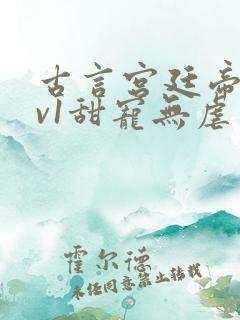 古言宫廷帝
v1甜宠無虐
霍尔德
未经同意禁止转载